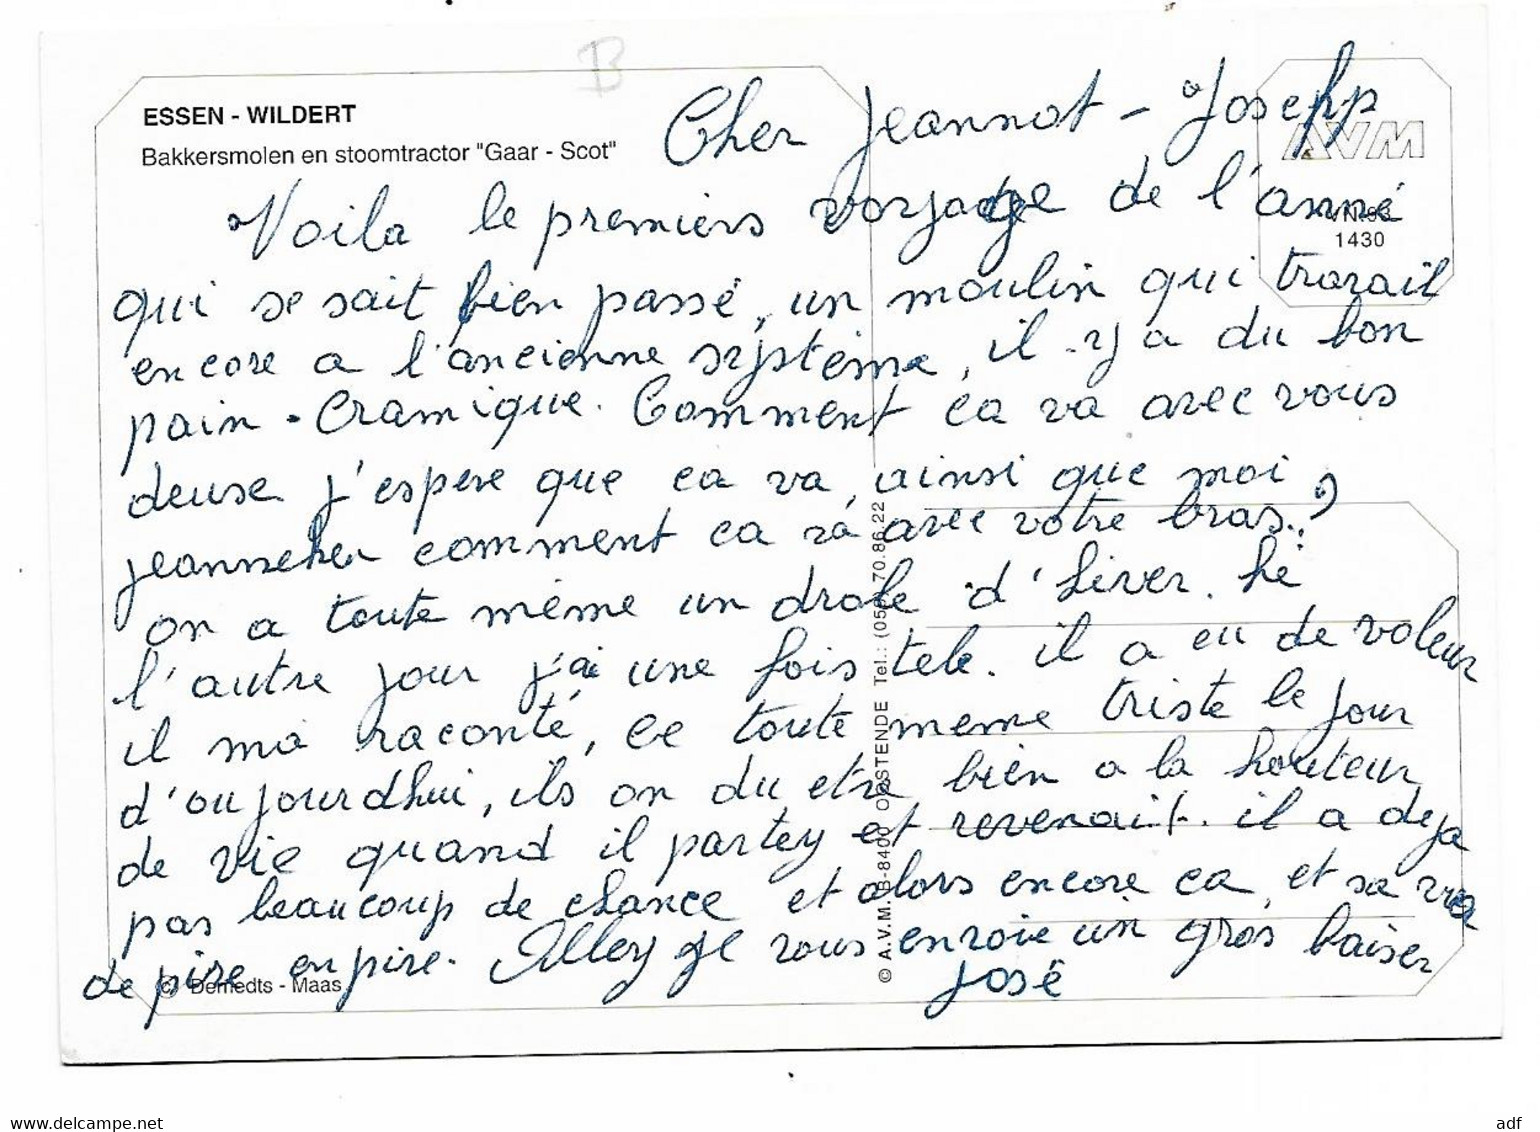 B
ESSEN - WILDERT
Bakkersmolen en stoomtractor "Gaar - Scot"
Cher Jeannot - Josepp
AVM
1430
Voila le premiers voyage de l'anné
qui se sait bien passé, un moulin qui travail
encore a l'ancienne système, il y a du bon
pain - Cramique. Comment ca va avec vous
deuse j'espere que ca va, ainsi que moi,
jeanneker comment ca va avec votre bras..?
on a toute même un drole d'hiver. hé
l'autre jour j'ai une fois tele. il a eu de voleur
il ma raconté, ce toute meme triste le jour
d'oujourdhui, ils on du etre bien a la houteur
de vie quand il partey et revenait. il a deja
pas beaucoup de chance et alors encore ca, et sa vra
de pire en pire. Alley je vous envoie un gros baiser
José
© Demedts - Maas
© A.V.M. B-8400 OOSTENDE Tel.: (059) 70.86.22
delcampe.net
adf